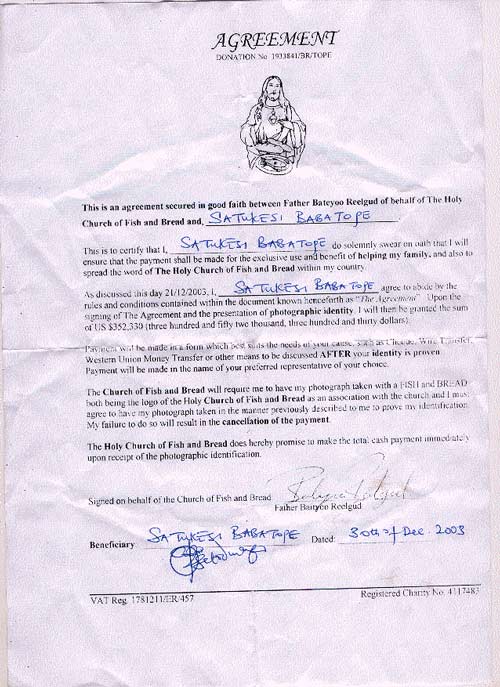 AGREEMENT
DONATION No. 1933841/BR/TOPE
This is an agreement secured in good faith between Father Bateyoo Reelgud of behalf of The Holy
Church of Fish and Bread and, SATUKESI BABATOPE.
This is to certify that I, SATUKESI BABATOPE do solemnly swear on oath that I will
ensure that the payment shall be made for the exclusive use and benefit of helping my family, and also to
spread the word of The Holy Church of Fish and Bread within my country.
As discussed this day 21/12/2003, I, SATUKESI BABATOPE agree to abide by the
rules and conditions contained within the document known henceforth as "The Agreement". Upon the
signing of The Agreement and the presentation of photographic identity, I will then be granted the sum
of US $352,330 (three hundred and fifty two thousand, three hundred and thirty dollars).
Payment will be made in a form which best suits the needs of your cause, such as Cheque, Wire Transfer,
Western Union Money Transfer or other means to be discussed AFTER your identity is proven
Payment will be made in the name of your preferred representative of your choice.
The Church of Fish and Bread will require me to have my photograph taken with a FISH and BREAD
both being the logo of the Holy Church of Fish and Bread as an association with the church and I must
agree to have my photograph taken in the manner previously described to me to prove my identification.
My failure to do so will result in the cancellation of the payment.
The Holy Church of Fish and Bread does hereby promise to make the total cash payment immediately
upon receipt of the photographic identification.
Signed on behalf of the Church of Fish and Bread
Father Baityoo Reelgud
Beneficiary: SATUKESI BABATOPE Dated: 30th of Dec. 2003
VAT Reg. 1781211/ER/457 Registered Charity No. 4117483